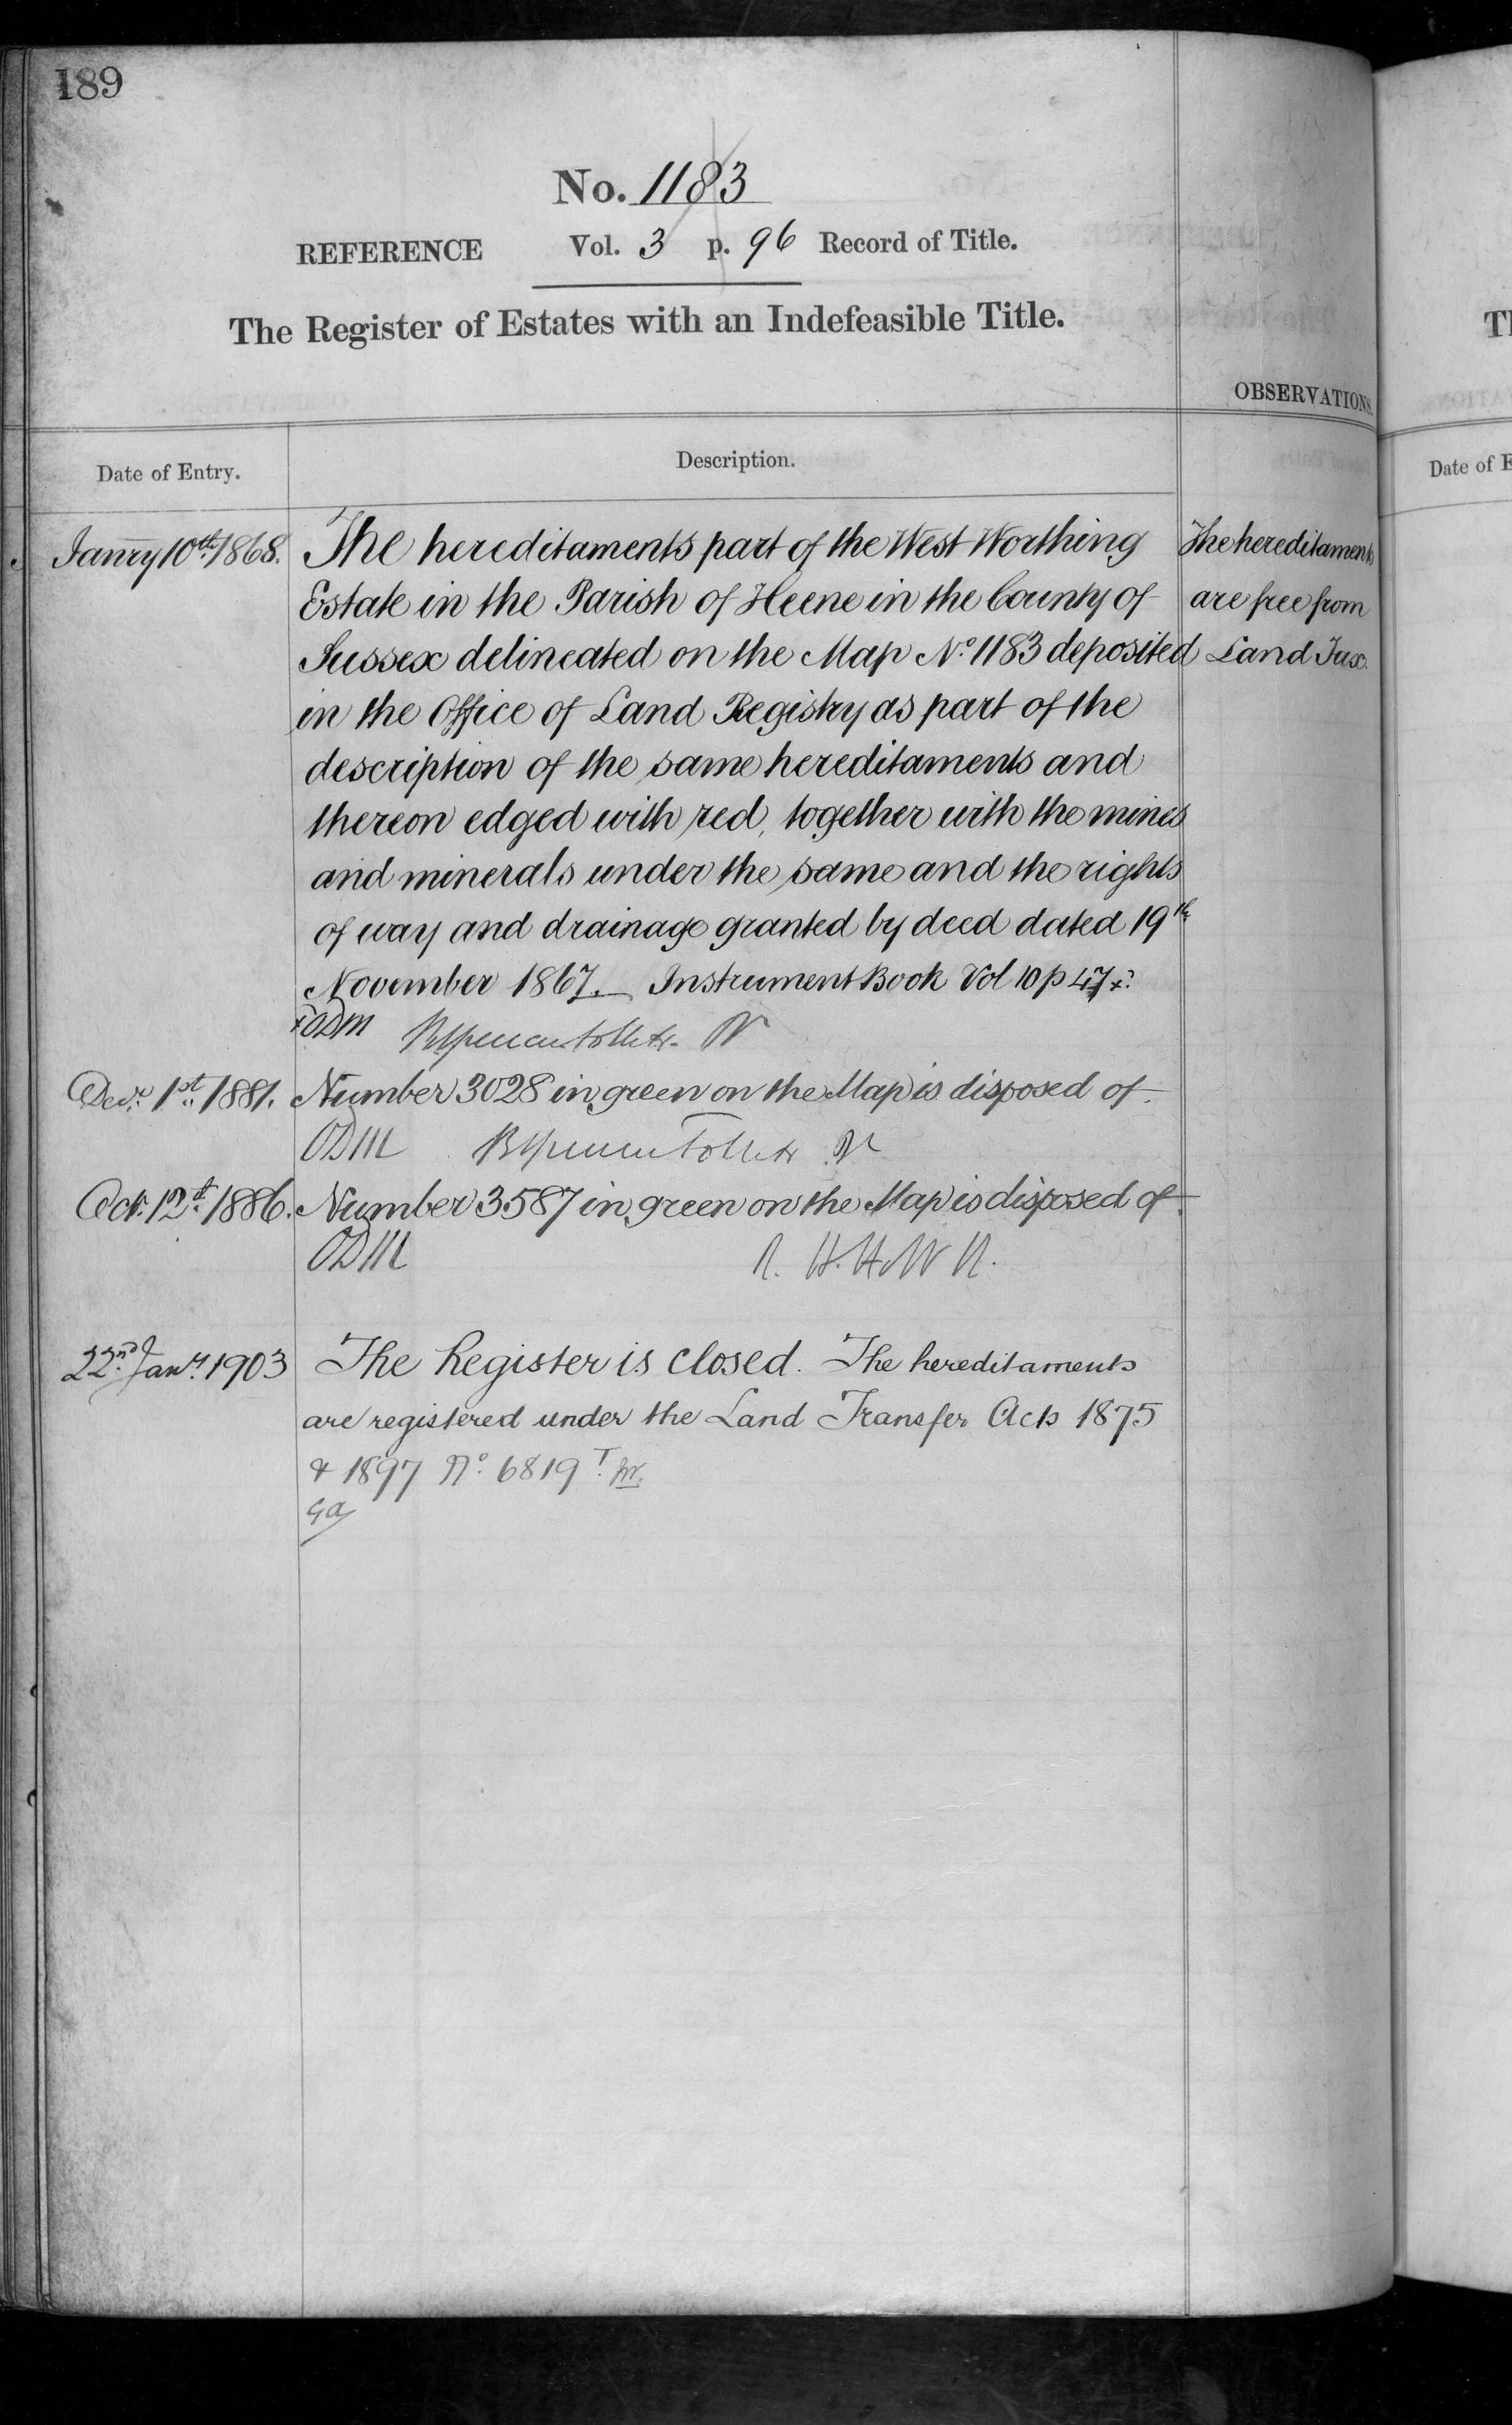 189
No. 1183
REFERENCE Vol. 3 p. 96 Record of Title.
The Register of Estates with an Indefeasible Title.
OBSERVATIONS.
Date of Entry. Description.
Janry 10th 1868. The hereditaments part of the West Worthing
Estate in the Parish of Heene in the County of
Sussex delineated on the Map No. 1183 deposited
in the Office of Land Registry as part of the
description of the same hereditaments and
thereon edged with red, together with the mines
and minerals under the same and the rights
of way and drainage granted by deed dated 19th
November 1867. Instrument Book Vol 10 p 47 x.
x ODM
The hereditaments
are free from
Land Tax.
Decr. 1st. 1881. Number 3028 in green on the Map is disposed of.
ODM
Octr. 12th. 1886. Number 3587 in green on the Map is disposed of.
ODM
22nd. Jany. 1903 The Register is closed. The hereditaments
are registered under the Land Transfer Acts 1875
& 1897 No. 6819
Date of E